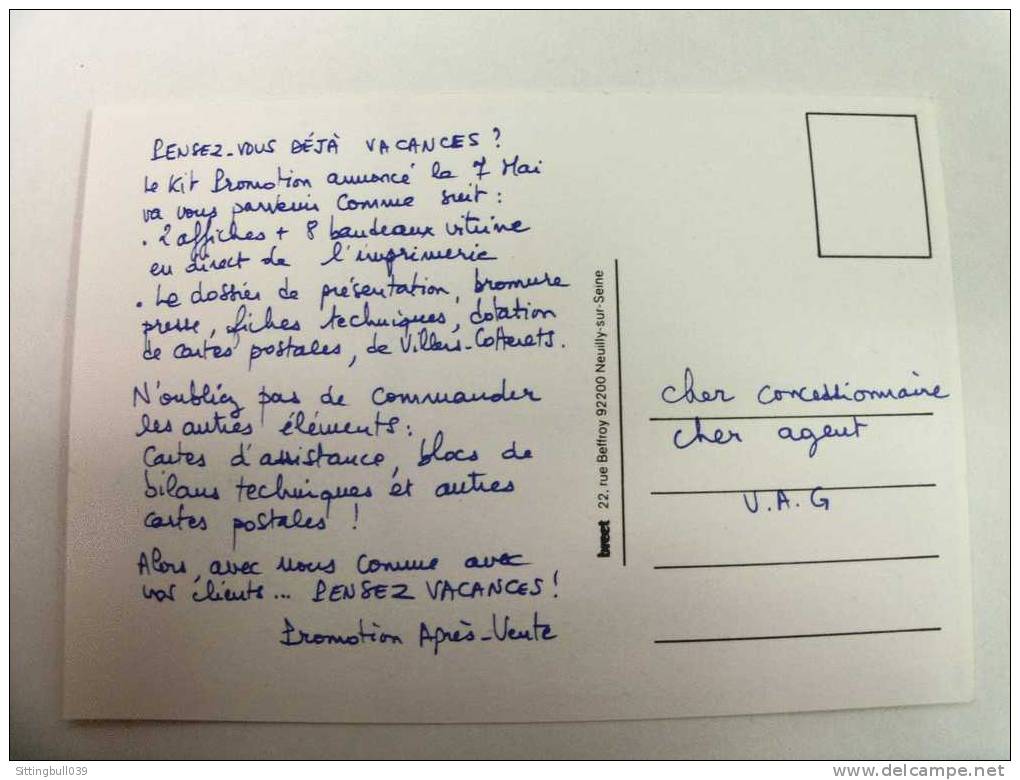 PENSEZ-VOUS DÉJÀ VACANCES ?
Le Kit Promotion annoncé le 7 Mai
va vous parvenir comme suit :
. 2 affiches + 8 bandeaux vitrine
en direct de l'imprimerie
. Le dossier de présentation, bromure
presse, fiches techniques, dotation
de cartes postales, de Villers-Cotterets.
N'oubliez pas de commander
les autres éléments :
Cartes d'assistance, blocs de
bilans techniques et autres
cartes postales !
Alors, avec nous comme avec
vos clients... PENSEZ VACANCES !
Promotion Après-Vente
breet 22, rue Beffroy 92200 Neuilly-sur-Seine
cher concessionnaire
cher agent
V.A.G
Sittingbull039
delcampe.net